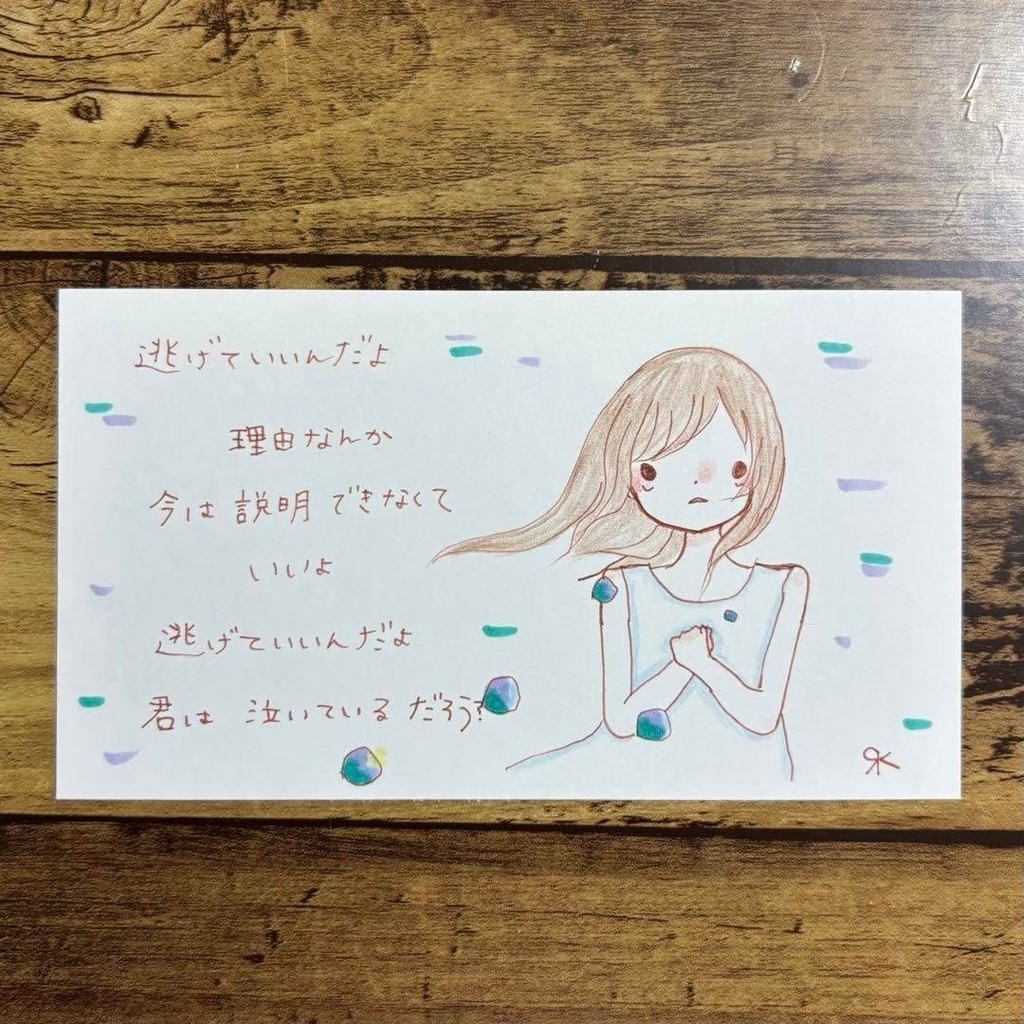 逃げていいんだよ
理由なんか
今は説明できなくて
いいよ
逃げていいんだよ
君は 泣いているだろう?
RK